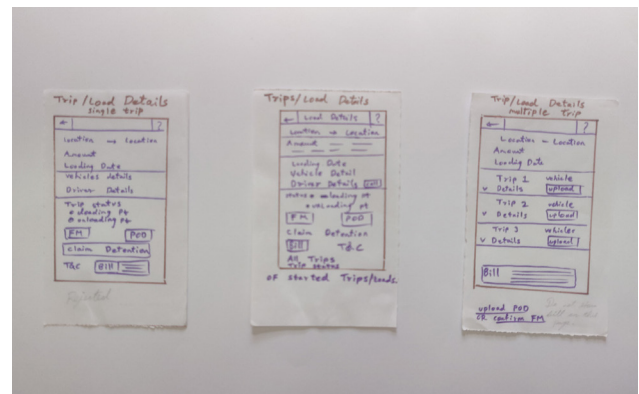 Trip/Load Details
single trip
?
Location → Location
Amount
Loading Date
Vehicles details
Driver Details
Trip status
loading pt
unloading pt
FM POD
Claim Detention
T&C Bill
Rejected
Trips/Load Details
Load Details ?
Location → Location
Amount
Loading Date
Vehicle Detail
Driver Details call
status loading pt
unloading pt
FM POD
Claim Detention
Bill T&C
All Trips
Trip status
OF started Trips/Loads.
Trip/Load Details
multiple Trip
?
Location - Location
Amount
Loading Date
Trip 1 vehicle
v Details upload
Trip 2 vehicle
v Details upload
Trip 3 vehicles
v Details upload
Bill
upload POD
OR confirm FM